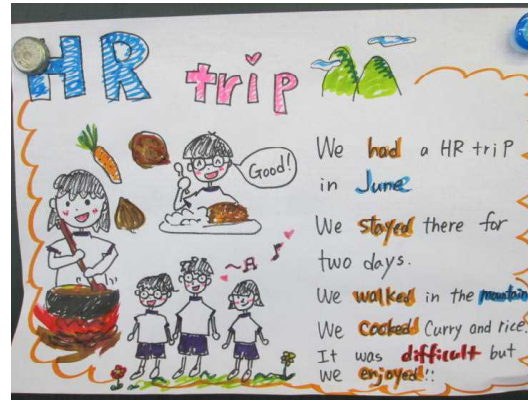 HR trip
Good!
We had a HR triP
in June
We stayed there for
two days.
We walked in the mountain
We cooked Curry and rice.
It was difficult but
we enjoyed!!